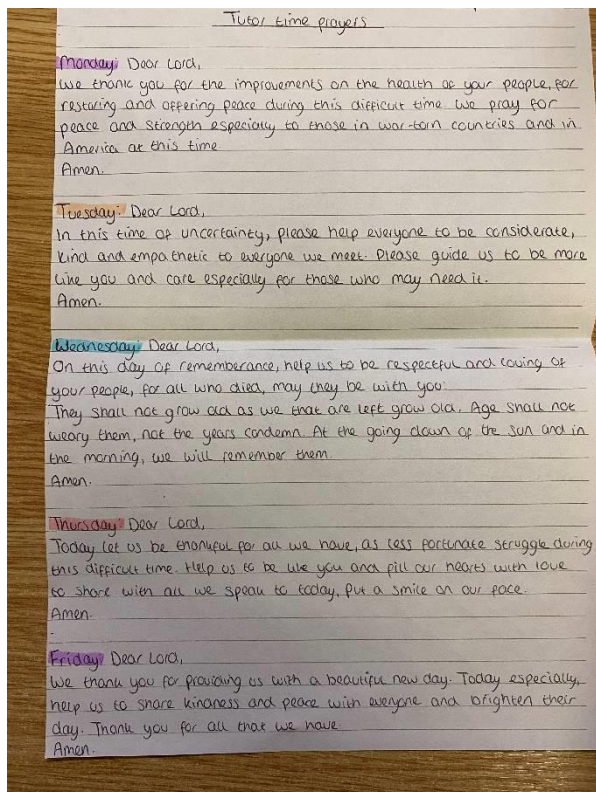 Tutor time prayers
Monday: Dear Lord,
We thank you for the improvements on the health of your people, for
restoring and offering peace during this difficult time. We pray for
peace and strength especially to those in war-torn countries and in
America at this time
Amen.
Tuesday: Dear Lord,
In this time of uncertainty, please help everyone to be considerate,
kind and empathetic to everyone we meet. Please guide us to be more
like you and care especially for those who may need it.
Amen.
Wednesday: Dear Lord,
On this day of rememberance, help us to be respectful and loving of
your people, for all who died, may they be with you.
They shall not grow old as we that are left grow old. Age shall not
weary them, not the years condemn. At the going down of the sun and in
the morning, we will remember them.
Amen.
Thursday: Dear Lord,
Today let us be thankful for all we have, as less fortunate struggle during
this difficult time. Help us to be like you and fill our hearts with love
to share with all we speak to today, Put a smile on our face.
Amen.
Friday: Dear Lord,
We thank you for providing us with a beautiful new day. Today especially,
help us to share kindness and peace with everyone and brighten their
day. Thank you for all that we have.
Amen.